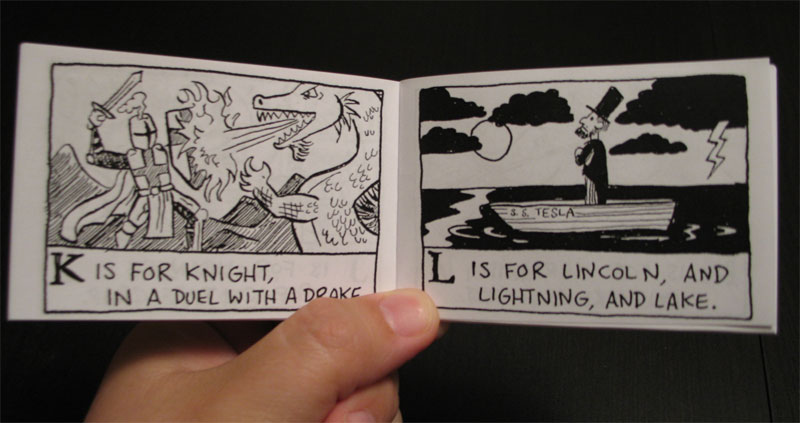 K IS FOR KNIGHT,
IN A DUEL WITH A DRAKE
S.S. TESLA
L IS FOR LINCOLN, AND
LIGHTNING, AND LAKE.